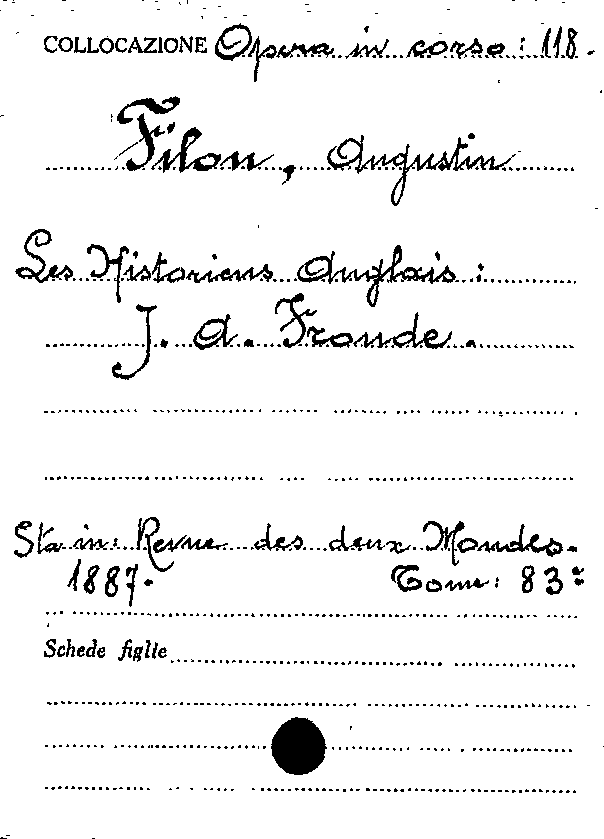 COLLOCAZIONE Opera in corso: 118.
Filon, Augustin
Les Historiens Anglais:
J. A. Froude.
Sta in: Revue des deux Mondes.
1887. Tome: 83º
Schede figlie